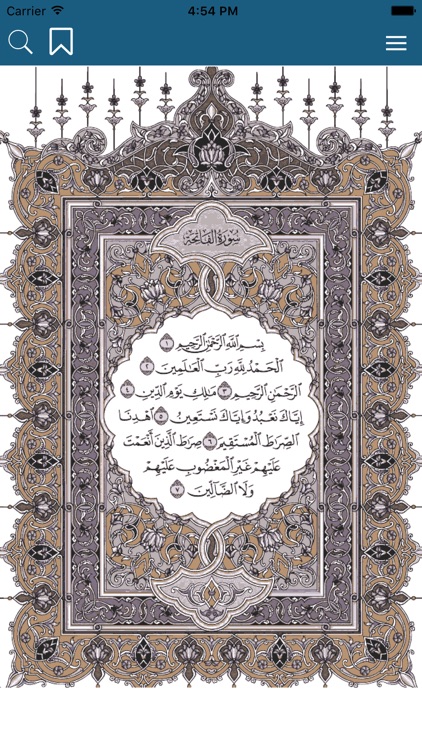 Carrier 4:54 PM
سورة الفاتحة
بِسْمِ اللَّهِ الرَّحْمَٰنِ الرَّحِيمِ ١
الْحَمْدُ لِلَّهِ رَبِّ الْعَالَمِينَ ٢
الرَّحْمَٰنِ الرَّحِيمِ ٣ مَالِكِ يَوْمِ الدِّينِ ٤
إِيَّاكَ نَعْبُدُ وَإِيَّاكَ نَسْتَعِينُ ٥ اهْدِنَا
الصِّرَاطَ الْمُسْتَقِيمَ ٦ صِرَاطَ الَّذِينَ أَنْعَمْتَ
عَلَيْهِمْ غَيْرِ الْمَغْضُوبِ عَلَيْهِمْ
وَلَا الضَّالِّينَ ٧